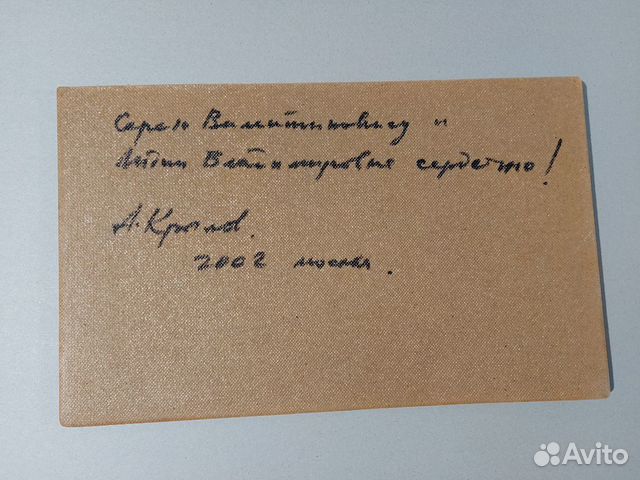 Сергею Валентиновичу и
Лидии Владимировне сердечно!
А. Крылов.
2002 Москва.
Avito